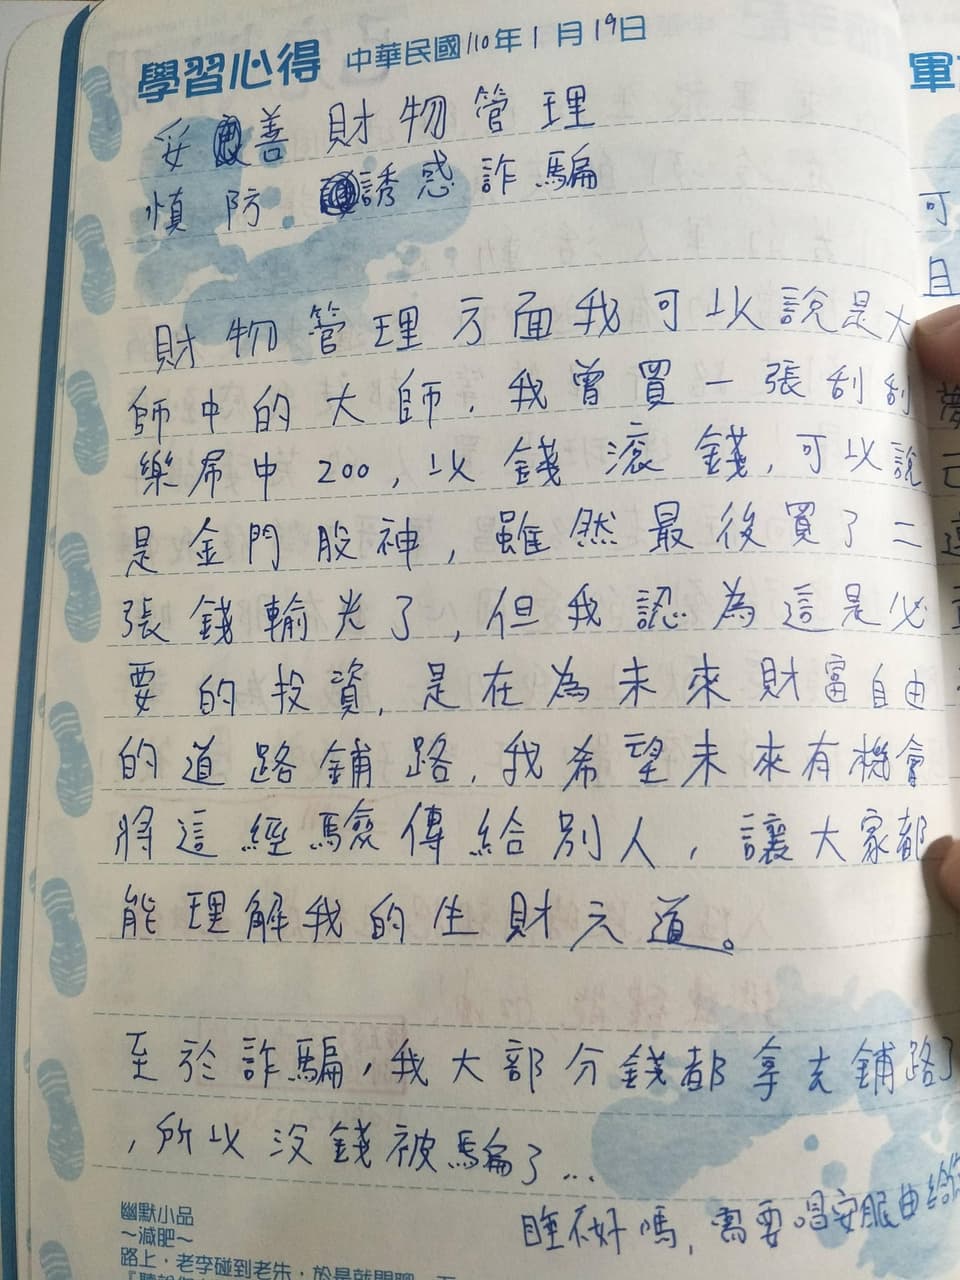 學習心得 中華民國110年1月19日
妥善財物管理
慎防誘惑詐騙
財物管理方面我可以說是大
師中的大師，我曾買一張刮刮
樂屌中200，以錢滾錢，可以說
是金門股神，雖然最後買了二
張錢輸光了，但我認為這是必
要的投資，是在為未來財富自由
的道路鋪路，我希望未來有機會
將這經驗傳給別人，讓大家都
能理解我的生財之道。
至於詐騙，我大部分錢都拿去鋪路了
，所以沒錢被騙了...
睡不好嗎，需要唱安眠曲給你
幽默小品
～減肥～
路上，老李碰到老朱，於是就問
軍
可
且
夢
己